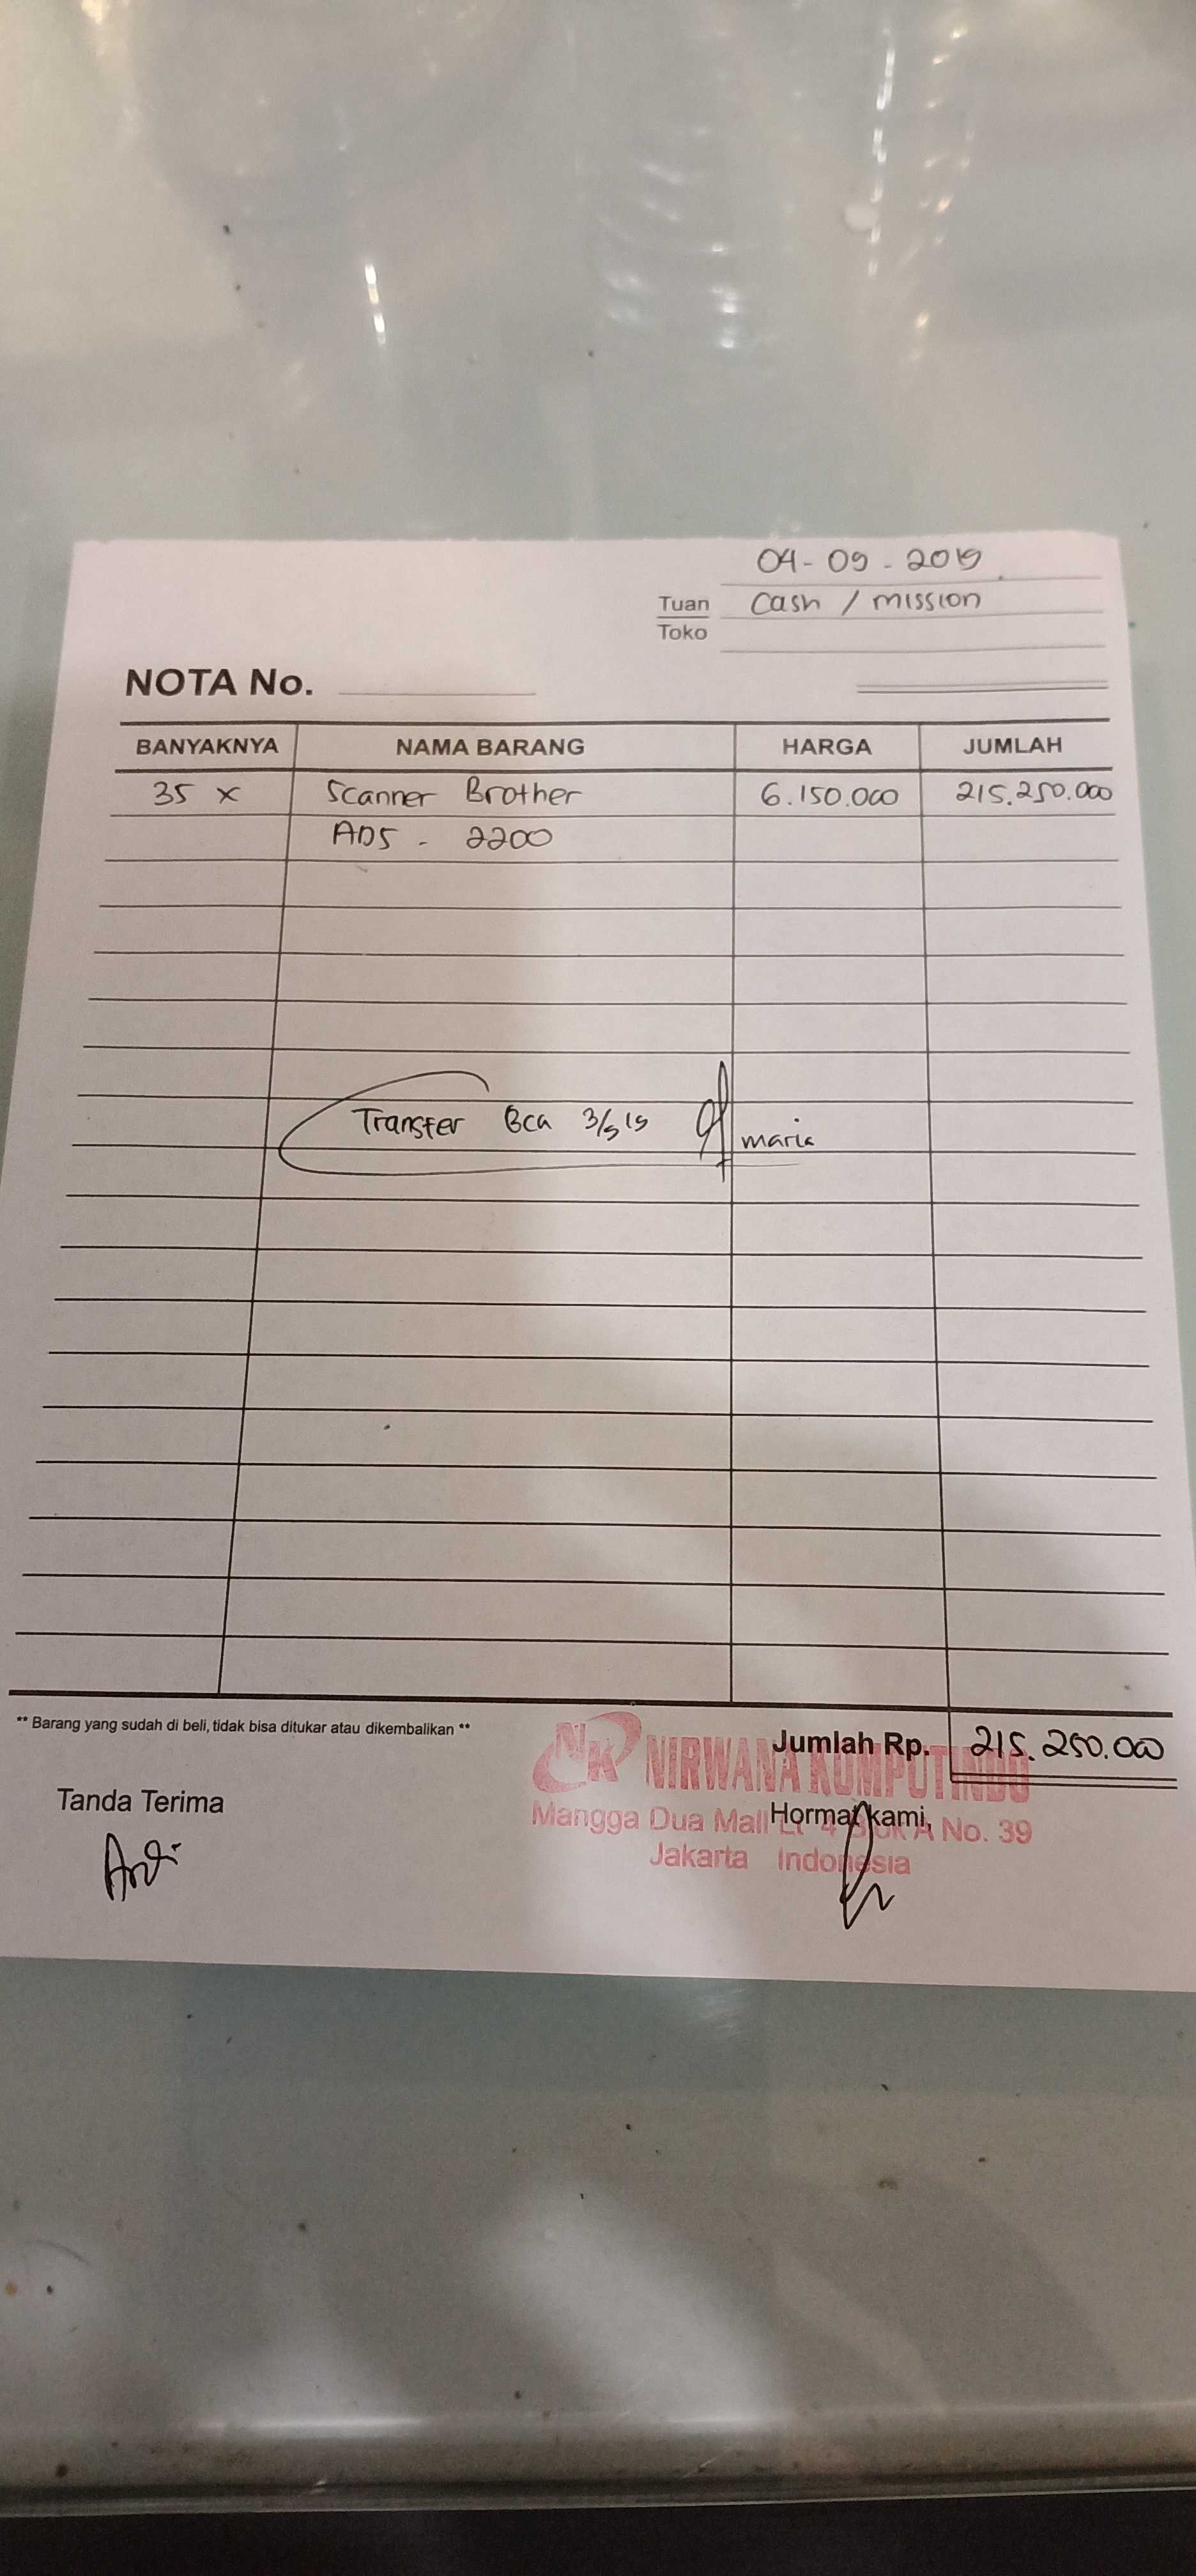 04-09-2019
Tuan Cash / mission
Toko
NOTA No.
BANYAKNYA NAMA BARANG HARGA JUMLAH
35 x Scanner Brother 6.150.000 215.250.000
ADS - 2200
Transfer Bca 3/9 19 maria
** Barang yang sudah di beli, tidak bisa ditukar atau dikembalikan **
Jumlah Rp. 215.250.000
NK NIRWANA KOMPUTINDO
Tanda Terima
Hormat kami,
Mangga Dua Mall Lt. 4 Blok A No. 39
Jakarta Indonesia
Ardi